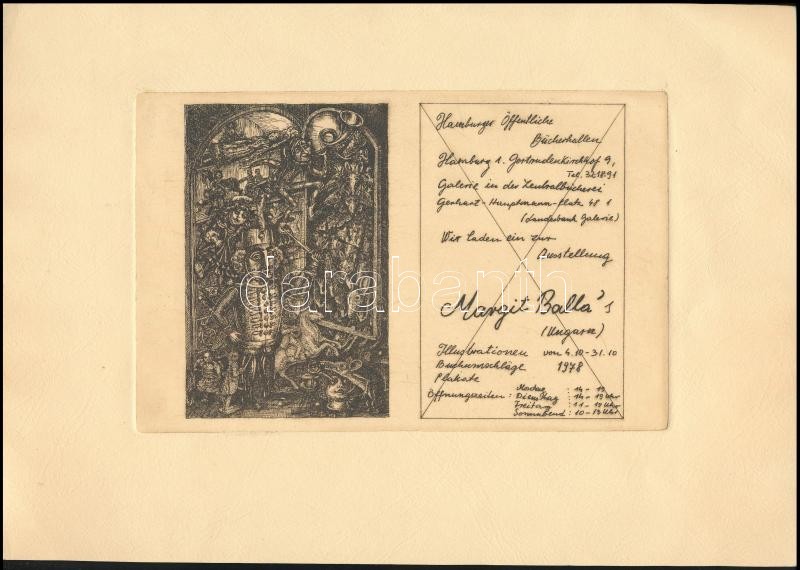 Hamburger Öffentliche
Bücherhallen
Hamburg 1. Gertrudenkirchhof 9,
Tel. 321891
Galerie in der Zentralbücherei
Gerhart-Hauptmann-platz 48 1
(Landesbank Galerie)
Wir laden ein zur
Ausstellung
darabanth
Margit Balla's
(Ungarn)
Illustrationen von 4.10-31.10
Buchumschläge 1978
Plakate
Öffnungszeiten: Montag : 14-19
Dienstag : 14-19 Uhr
Freitag : 11-19 Uhr
Sonnabend : 10-13 Uhr